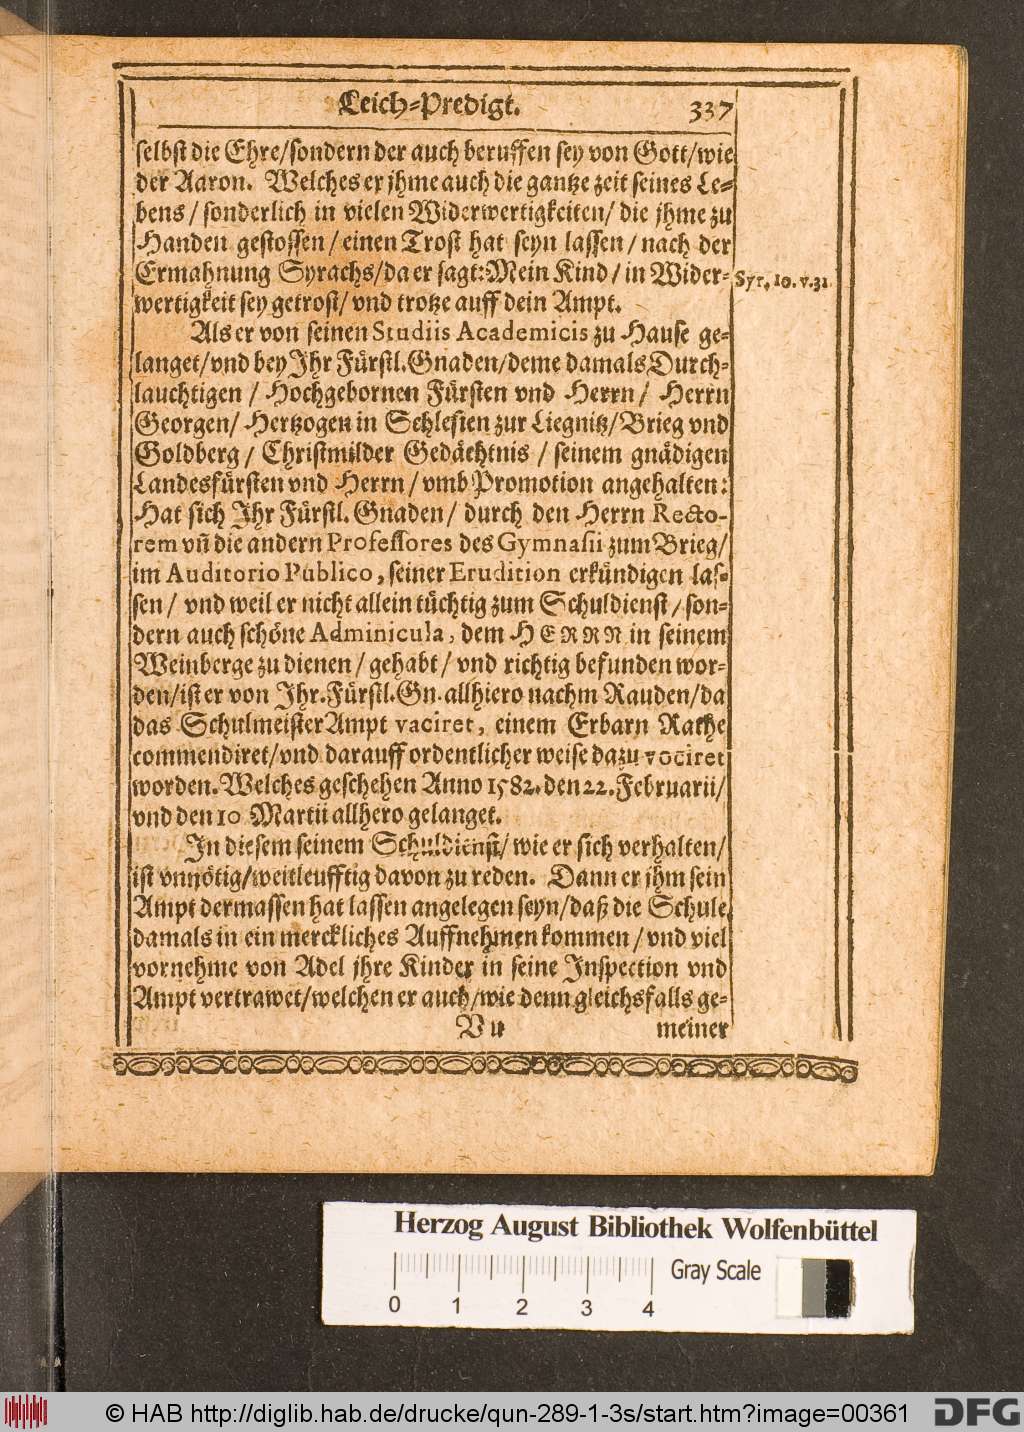 Leich-Predigt. 337
selbst die Ehre/sondern der auch beruffen sey von Gott/wie
der Aaron. Welches er jhme auch die gantze zeit seines Le-
bens/sonderlich in vielen Widerwertigkeiten/die jhme zu
Handen gestossen/einen Trost hat seyn lassen/nach der
Ermahnung Syrachs/da er sagt: Mein Kind/in Wider-
Syr. 10. v. 31
wertigkeit sey getrost/vnd trotze auff dein Ampt.
Als er von seinen Studiis Academicis zu Hause ge-
langet/vnd bey Ihr Fürstl. Gnaden/deme damals Durch-
lauchtigen/Hochgebornen Fürsten vnd Herrn/Herrn
Georgen/Hertzogen in Schlesien zur Liegnitz/Brieg vnd
Goldberg/Christmilder Gedächtnis/seinem gnädigen
Landesfürsten vnd Herrn/vmb Promotion angehalten:
Hat sich Ihr Fürstl. Gnaden/durch den Herrn Recto-
rem vñ die andern Professores des Gymnasii zum Brieg/
im Auditorio Publico, seiner Erudition erkündigen las-
sen/vnd weil er nicht allein tüchtig zum Schuldienst/son-
dern auch schöne Adminicula, dem HERRN in seinem
Weinberge zu dienen/gehabt/vnd richtig befunden wor-
den/ist er von Ihr. Fürstl. Gn. allhiero nachm Rauden/da
das Schulmeister Ampt vaciret, einem Erbarn Rathe
commendiret/vnd darauff ordentlicher weise dazu vociret
worden. Welches geschehen Anno 1582. den 22. Februarii/
vnd den 10 Martii allhero gelanget.
In diesem seinem Schuldienst/wie er sich verhalten/
ist vnnötig/weitleufftig davon zu reden. Dann er jhm sein
Ampt dermassen hat lassen angelegen seyn/daß die Schule
damals in ein merckliches Auffnehmen kommen/vnd viel
vornehme von Adel jhre Kinder in seine Inspection vnd
Ampt vertrawet/welchen er auch/wie denn gleichsfalls ge-
Vu meiner
Herzog August Bibliothek Wolfenbüttel
Gray Scale
0 1 2 3 4
© HAB http://diglib.hab.de/drucke/qun-289-1-3s/start.htm?image=00361
DFG